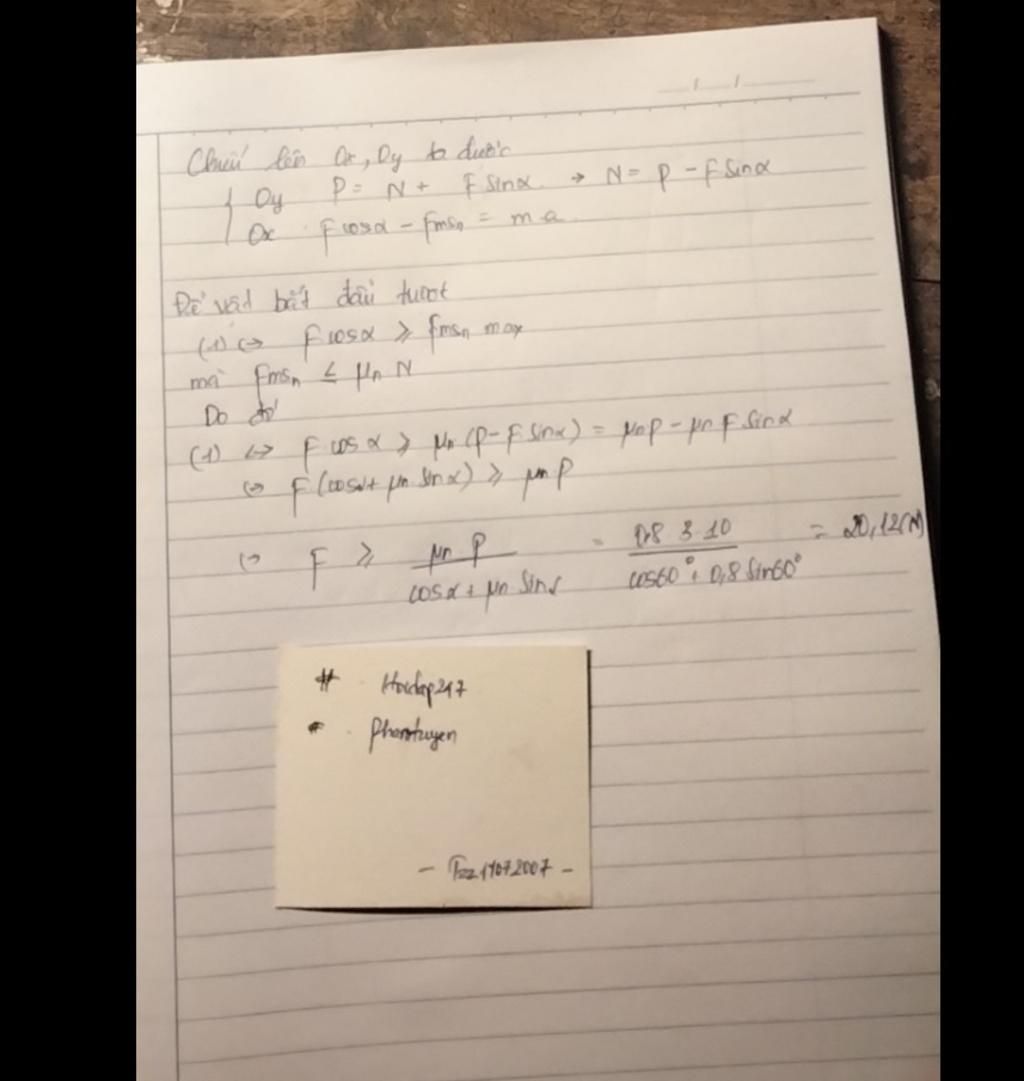 Chiếu lên Ox, Oy ta được
Oy P = N + F sinα → N = P - F sinα
Ox F cosα - Fmsn = m a
Để vật bắt đầu trượt
(1) ⇔ F cosα ≥ Fmsn max
mà Fmsn ≤ μn N
Do đó
(1) ⇔ F cosα ≥ μn (P - F sinα) = μn P - μn F sinα
⇔ F (cosα + μn sinα) ≥ μn P
⇔ F ≥ μn P / (cosα + μn sinα) = 0,8 3 10 / (cos60° + 0,8 sin60°) = 20,12 (N)
# Hoidap247
Phamtuyen